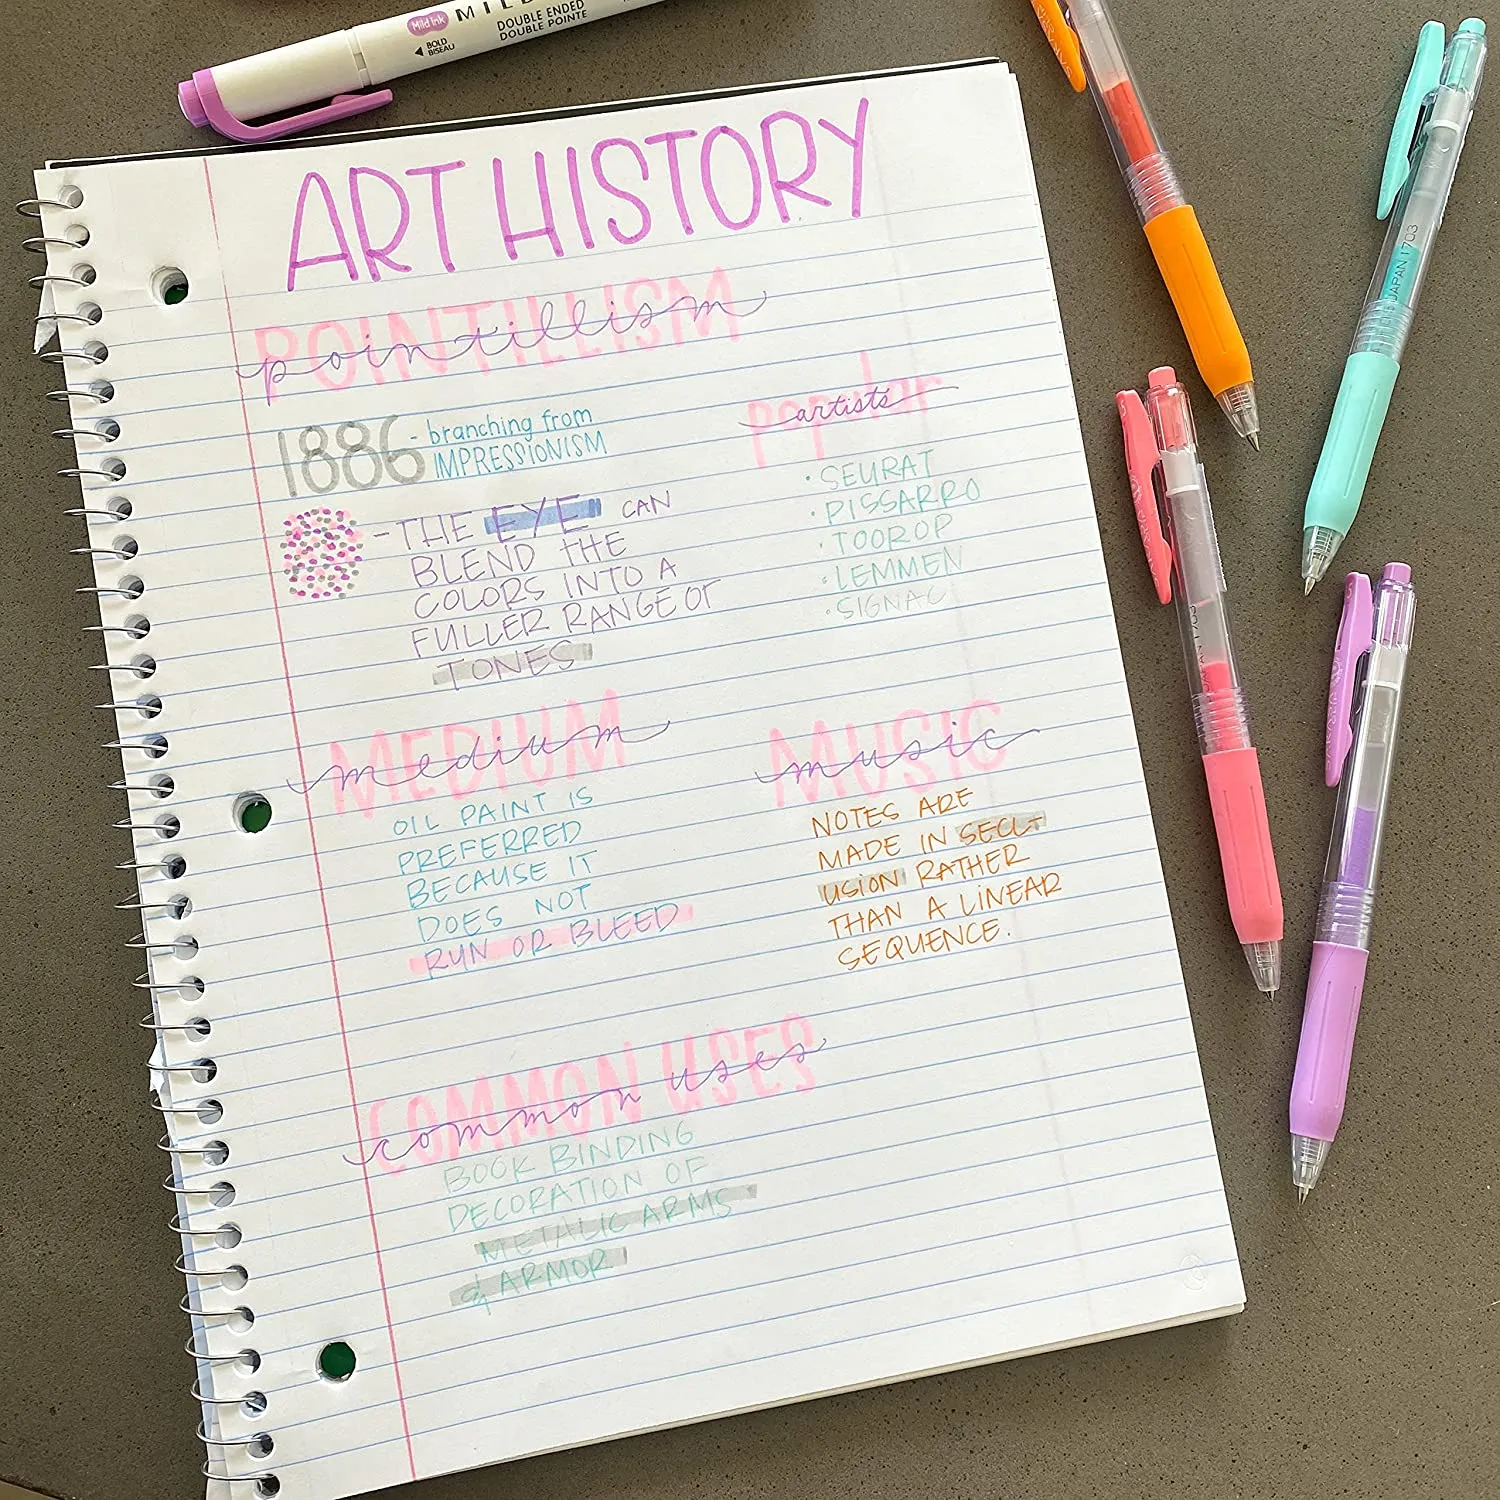 Mild ink
BOLD
BISEAU
DOUBLE ENDED
DOUBLE POINTE
ART HISTORY
POINTILLISM
pointillism
1886 - branching from
IMPRESSIONISM
- THE EYE CAN
BLEND THE
COLORS INTO A
FULLER RANGE OF
TONES
popular
artists
· SEURAT
· PISSARRO
· TOOROP
· LEMMEN
· SIGNAC
MEDIUM
medium
OIL PAINT IS
PREFERRED
BECAUSE IT
DOES NOT
RUN OR BLEED
MUSIC
music
NOTES ARE
MADE IN SECL-
USION RATHER
THAN A LINEAR
SEQUENCE.
COMMON USES
common uses
BOOK BINDING
DECORATION OF
METALIC ARMS
& ARMOR
JAPAN 1703